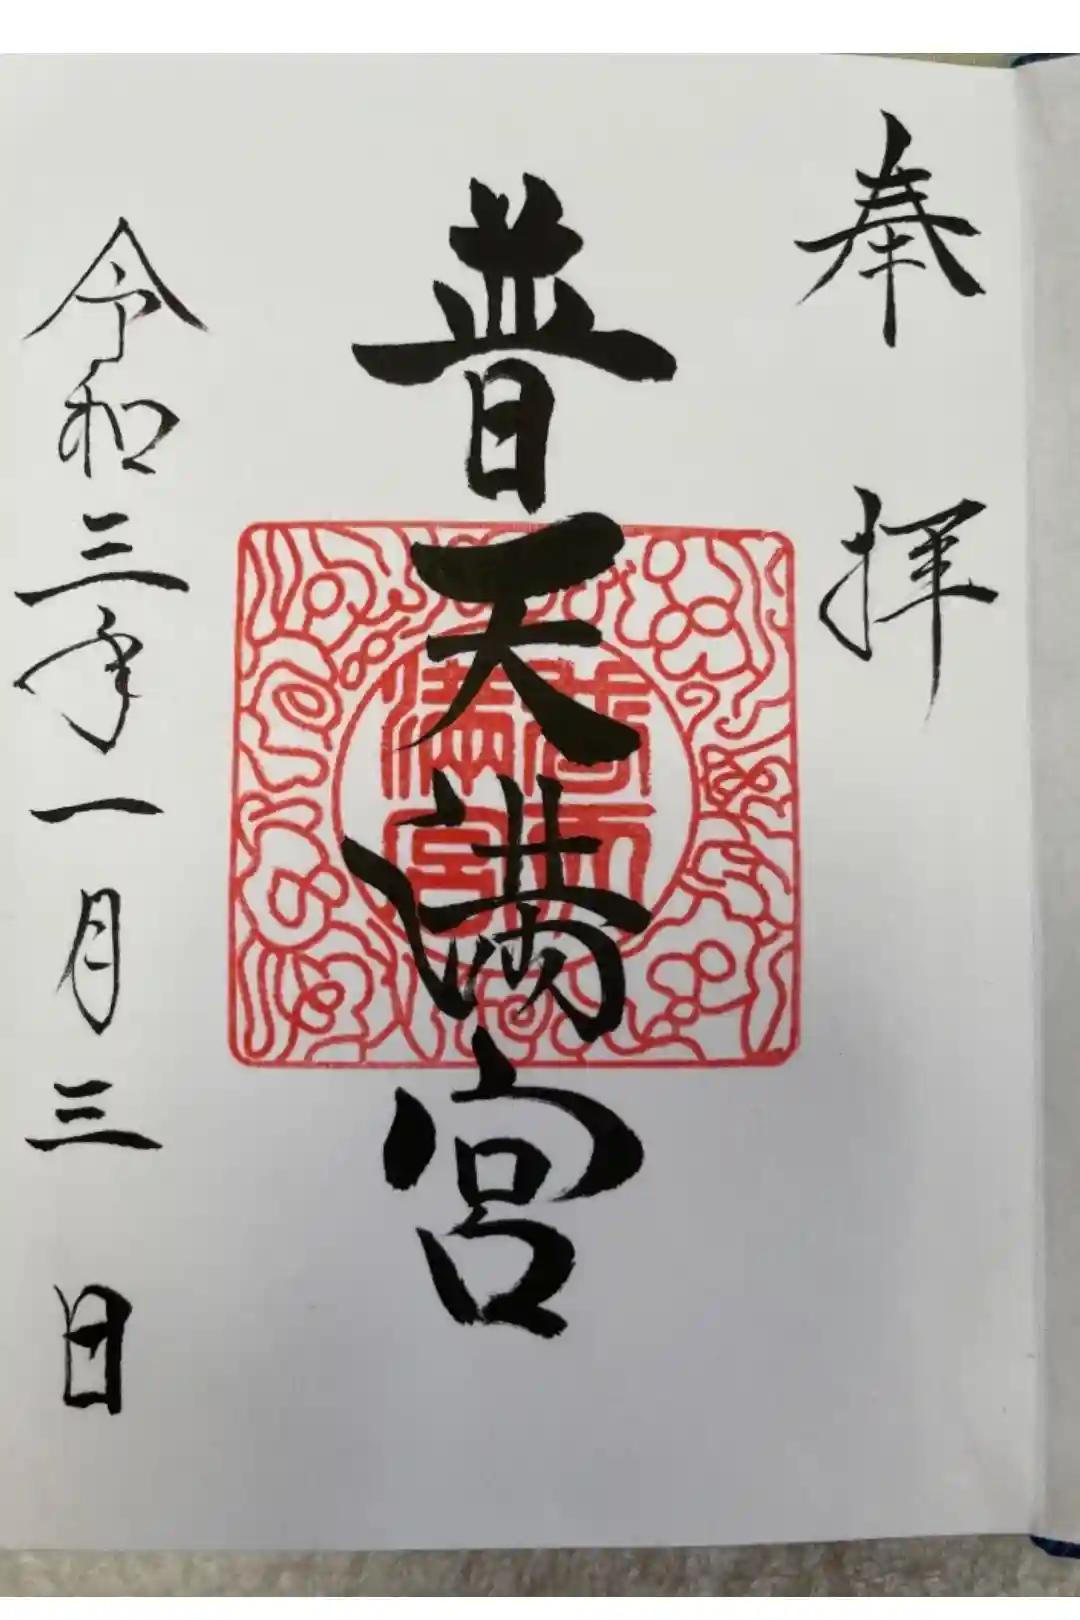 奉拝
普天満宮
令和三年一月三日
普天満宮